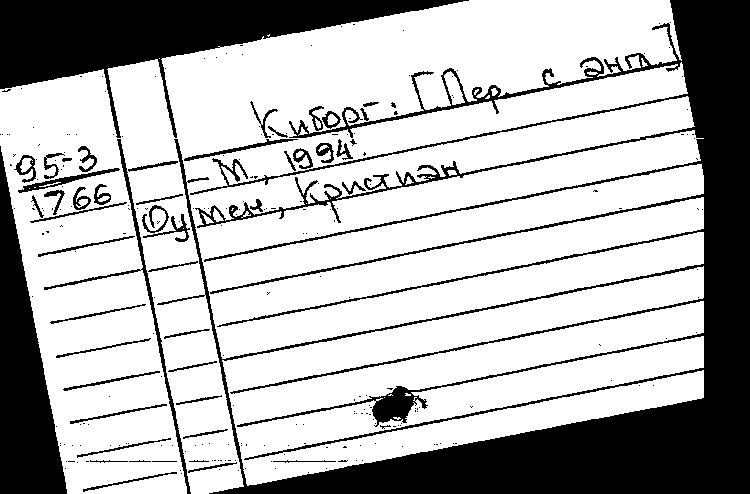 Киборг: [Пер. с англ.]
95-3 – М., 1994.
1766
Оумен, Кристиэн